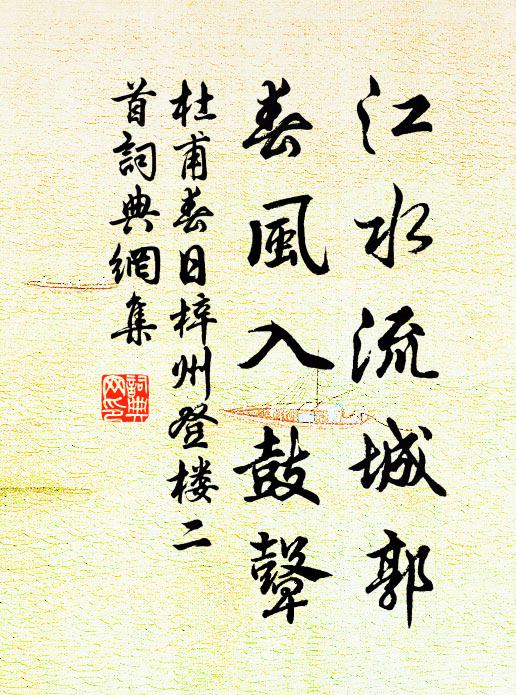 江水流城郭
春風入鼓鼙
杜甫春日梓州登楼二
首詞典網集
詞典
网印